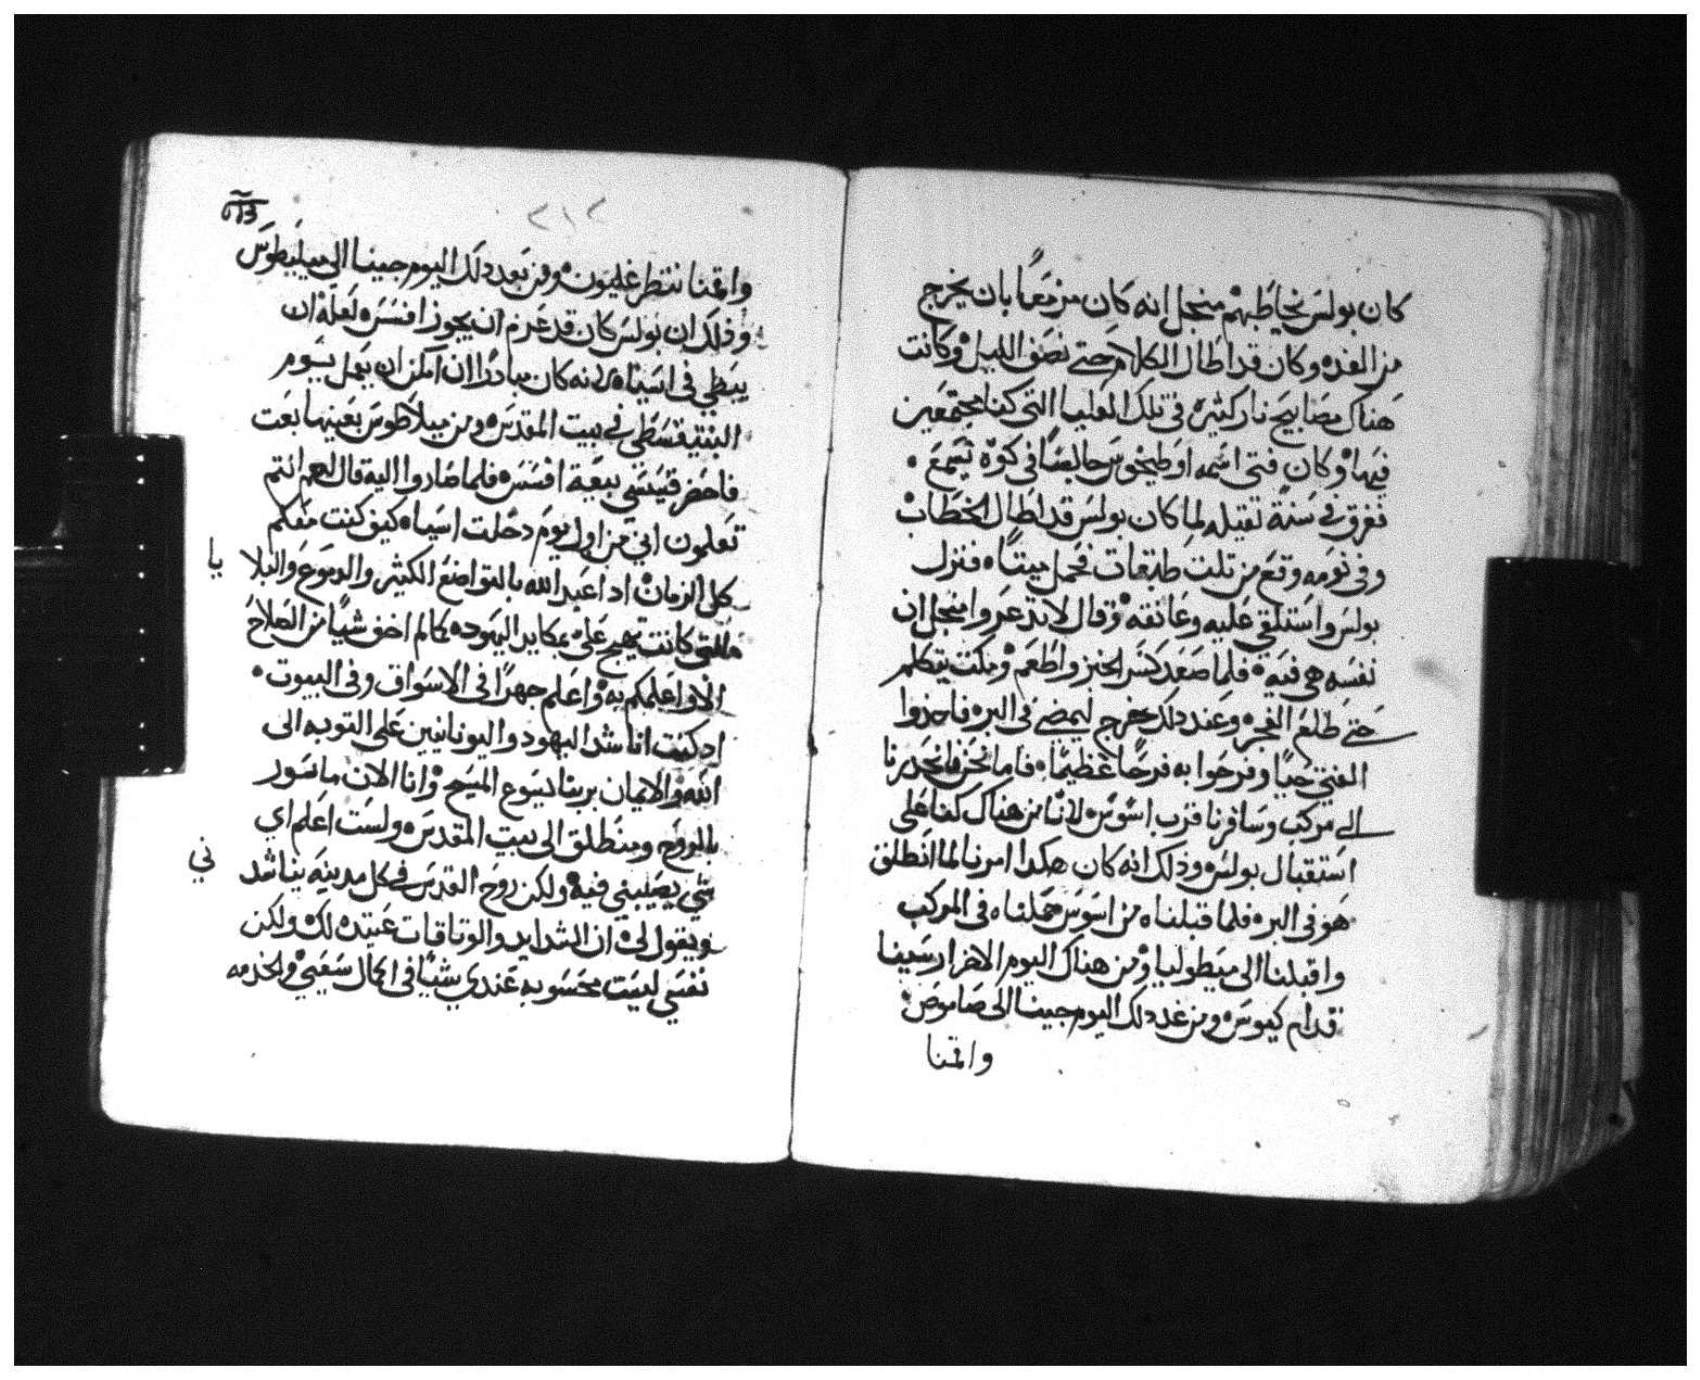 كان بولس يخاطبهم منجل انه كان مزمعًا بان يخرج
من الغده وكان قد اطال الكلام حتى نصف الليل وكانت
هناك مصابيح نار كثيره في تلك العليا التي كنا مجتمعين
فيها وكان فتى اسمه اوطيخوس جالسًا في كوة تسمع
فغرق في سنة ثقيله لما كان بولس قد اطال الخطاب
وفي نومه وقع من تلت طبقات فحمل ميتًا فنزل
بولس واستلقى عليه وعانقه وقال لا تدعروا منجل ان
نفسه هي فيه فلما صعد كسر الخبز واطعم ومكت يتكلم
حتى طلع الفجر وعند دلك خرج ليمضى في البر فاخدوا
الفتى حيًا وفرحوا به فرحًا عظيمًا فاما نحن فانحدرنا
الى مركب وسافرنا قرب اسوس لانا من هناك كنا على
استقبال بولس وذلك انه كان هكدا امرنا لما انطلق
هو في البر فلما قبلناه من اسوس حملناه في المركب
واقبلنا الى ميطوليا ومن هناك اليوم الاخر ارسينا
قدام كيوس ومن غد دلك اليوم جينا الى صاموص
واقمنا
٢١٢
واقمنا ننتظر غليون ومن بعد دلك اليوم جينا الى ميليطوس
وذلك ان بولس كان قد عزم ان يجوز افسس لعله ان
يبطي في اسيا لانه كان مبادرًا ان امكن ان يعمل يوم
البنتيقسطي في بيت المقدس ومن ميلاطوس بعينها بعت
فاحضر قسيسي بيعة افسس فلما صاروا اليه قال لهم انتم
تعلمون اني من اول يوم دخلت اسيا كيف كنت معكم
كل الزمان اد اعبد الله بالتواضع الكثير والدموع والبلا يا
التي كانت تهيج على بمكايد اليهود كما لم اخف شيًا من الصلاح
الا واعلمكم به واعلم جهرًا في الاسواق وفي البيوت
اد كنت اناشد اليهود واليونانيين على التوبه الى
الله والايمان بربنا يسوع المسيح وانا الان ماسور
بالروح ومنطلق الى بيت المقدس ولست اعلم اي
شي يصيبني فيه ولكن روح القدس في كل مدينه يناشد ني
ويقول لي ان الشدايد والوتاقات عتيده لك ولكن
نفسي ليست محسوبه عندي شيًا في اكمال سعيي والخدمه